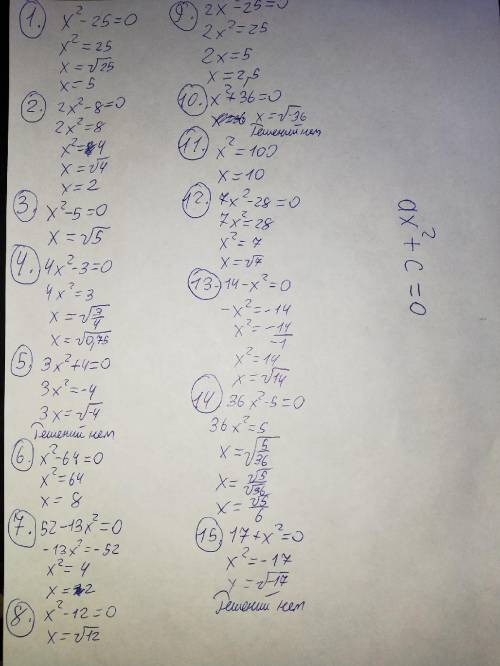 1. x²-25=0
x²=25
x=√25
x=5
2. 2x²-8=0
2x²=8
x²=4
x=√4
x=2
3. x²-5=0
x=√5
4. 4x²-3=0
4x²=3
x=√(3/4)
x=√0,75
5. 3x²+4=0
3x²=-4
3x=√-4
Решений нет
6. x²-64=0
x²=64
x=8
7. 52-13x²=0
-13x²=-52
x²=4
x=2
8. x²-12=0
x=√12
9. 2x²-25=0
2x²=25
2x=5
x=2,5
10. x²+36=0
x=√-36
Решений нет
11. x²=100
x=10
12. 7x²-28=0
7x²=28
x²=7
x=√7
13. 14-x²=0
-x²=-14
x²=-14/-1
x²=14
x=√14
14 36x²-5=0
36x²=5
x=√(5/36)
x=√5/√36
x=√5/6
15. 17+x²=0
x²=-17
x=√-17
Решений нет
ax²+c=0